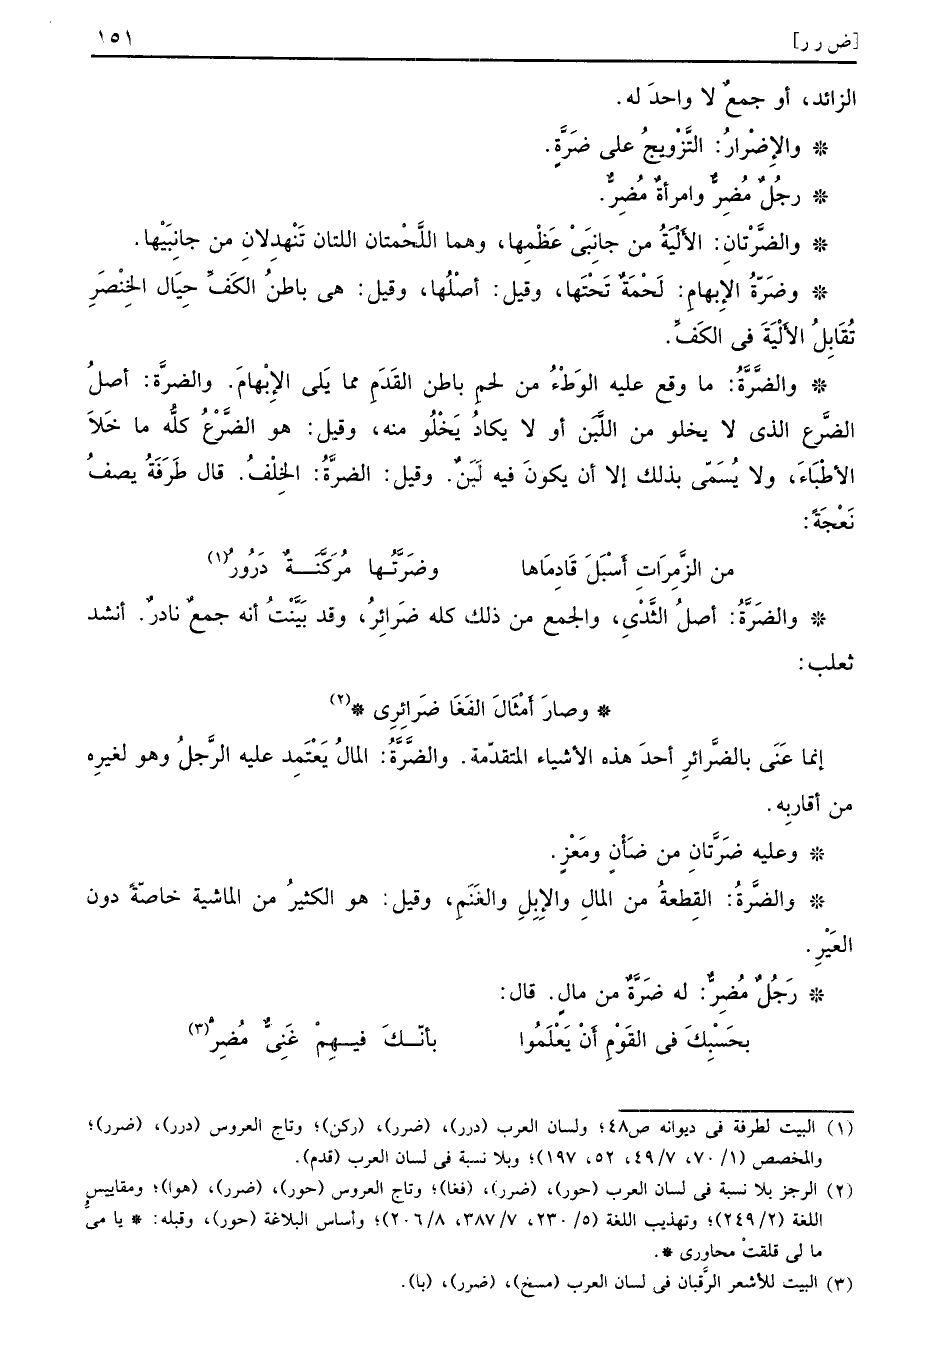 [ض ر ر] ١٥١
الزائد، أو جمعٌ لا واحدَ له.
* والإِضْرارُ: التَّزْويجُ على ضَرَّةٍ.
* رجلٌ مُضِرٌّ وامرأةٌ مُضِرٌّ.
* والضَّرَّتان: الأَلْيَةُ من جانِبَىْ عَظْمِها، وهما اللَّحْمتان اللتان تَنْهدِلانِ من جانِبَيْها.
* وضَرّةُ الإِبهامِ: لَحْمَةٌ تَحْتَها، وقيل: أصلُها، وقيل: هى باطنُ الكَفِّ حِيَال الخِنْصَرِ
تُقَابِلُ الأَلْيَةَ فى الكَفِّ.
* والضَّرَّةُ: ما وقع عليه الوَطْءُ من لحمِ باطن القَدَمِ مما يَلى الإِبْهامَ. والضرَّة: أصلُ
الضَّرع الذى لا يخلو من اللَّبَن أو لا يكادُ يَخْلُو منه، وقيل: هو الضَّرْعُ كلُّه ما خَلاَ
الأطْبَاءَ، ولا يُسَمّى بذلك إلا أن يكونَ فيه لَبَنٌ. وقيل: الضرَّةُ: الخِلْفُ. قال طَرَفَةُ يصفُ
نَعْجَةً:
من الزَّمِرَاتِ أَسْبَلَ قَادِمَاها وضَرَّتُـها مُرَكَّنَـــةٌ دَرُورُ(١)
* والضَرَّةُ: أصلُ الثَّدْىِ، والجمع من ذلك كله ضَرائِرُ، وقد بَيَّنْتُ أنه جمعٌ نادرٌ. أنشد
ثعلب:
* وصارَ أَمْثَالَ الفَغَا ضَرَائِرِى *(٢)
إنما عَنَى بالضَّرائرِ أحدَ هذه الأشياء المتقدّمة. والضَّرَّةُ: المالُ يَعْتَمِد عليه الرَّجلُ وهو لغيرِه
من أقارِبِه.
* وعليه ضَرَّتانِ من ضَأْنٍ ومَعْزٍ.
* والضَّرةُ: القِطعةُ من المالِ والإِبِلِ والغَنَمِ، وقيل: هو الكثيرُ من الماشية خاصّةً دون
العَيْرِ.
* رَجُلٌ مُضِرٌّ: له ضَرَّةٌ من مالٍ. قال:
بحَسْبِكَ فى القَوْمِ أَنْ يَعْلَمُوا بأنّــكَ فيــهِمْ غَنِىٌّ مُضِرْ(٣)
(١) البيت لطرفة فى ديوانه ص٤٨؛ ولسان العرب (درر)، (ضرر)، (ركن)؛ وتاج العروس (درر)، (ضرر)؛
والمخصص (١/ ٧٠، ٧/ ٤٩، ٥٢، ١٩٧)؛ وبلا نسبة فى لسان العرب (قدم).
(٢) الرجز بلا نسبة فى لسان العرب (حور)، (ضرر)، (فغا)؛ وتاج العروس (حور)، (ضرر)، (هوا)؛ ومقاييس
اللغة (٢/ ٢٤٩)؛ وتهذيب اللغة (٥/ ٢٣٠، ٧/ ٣٨٧، ٨/ ٢٠٦)؛ وأساس البلاغة (حور)، وقبله: * يا مىُّ
ما لى قلقتْ محاورى *.
(٣) البيت للأشعر الرَّقبان فى لسان العرب (مسخ)، (ضرر)، (با).